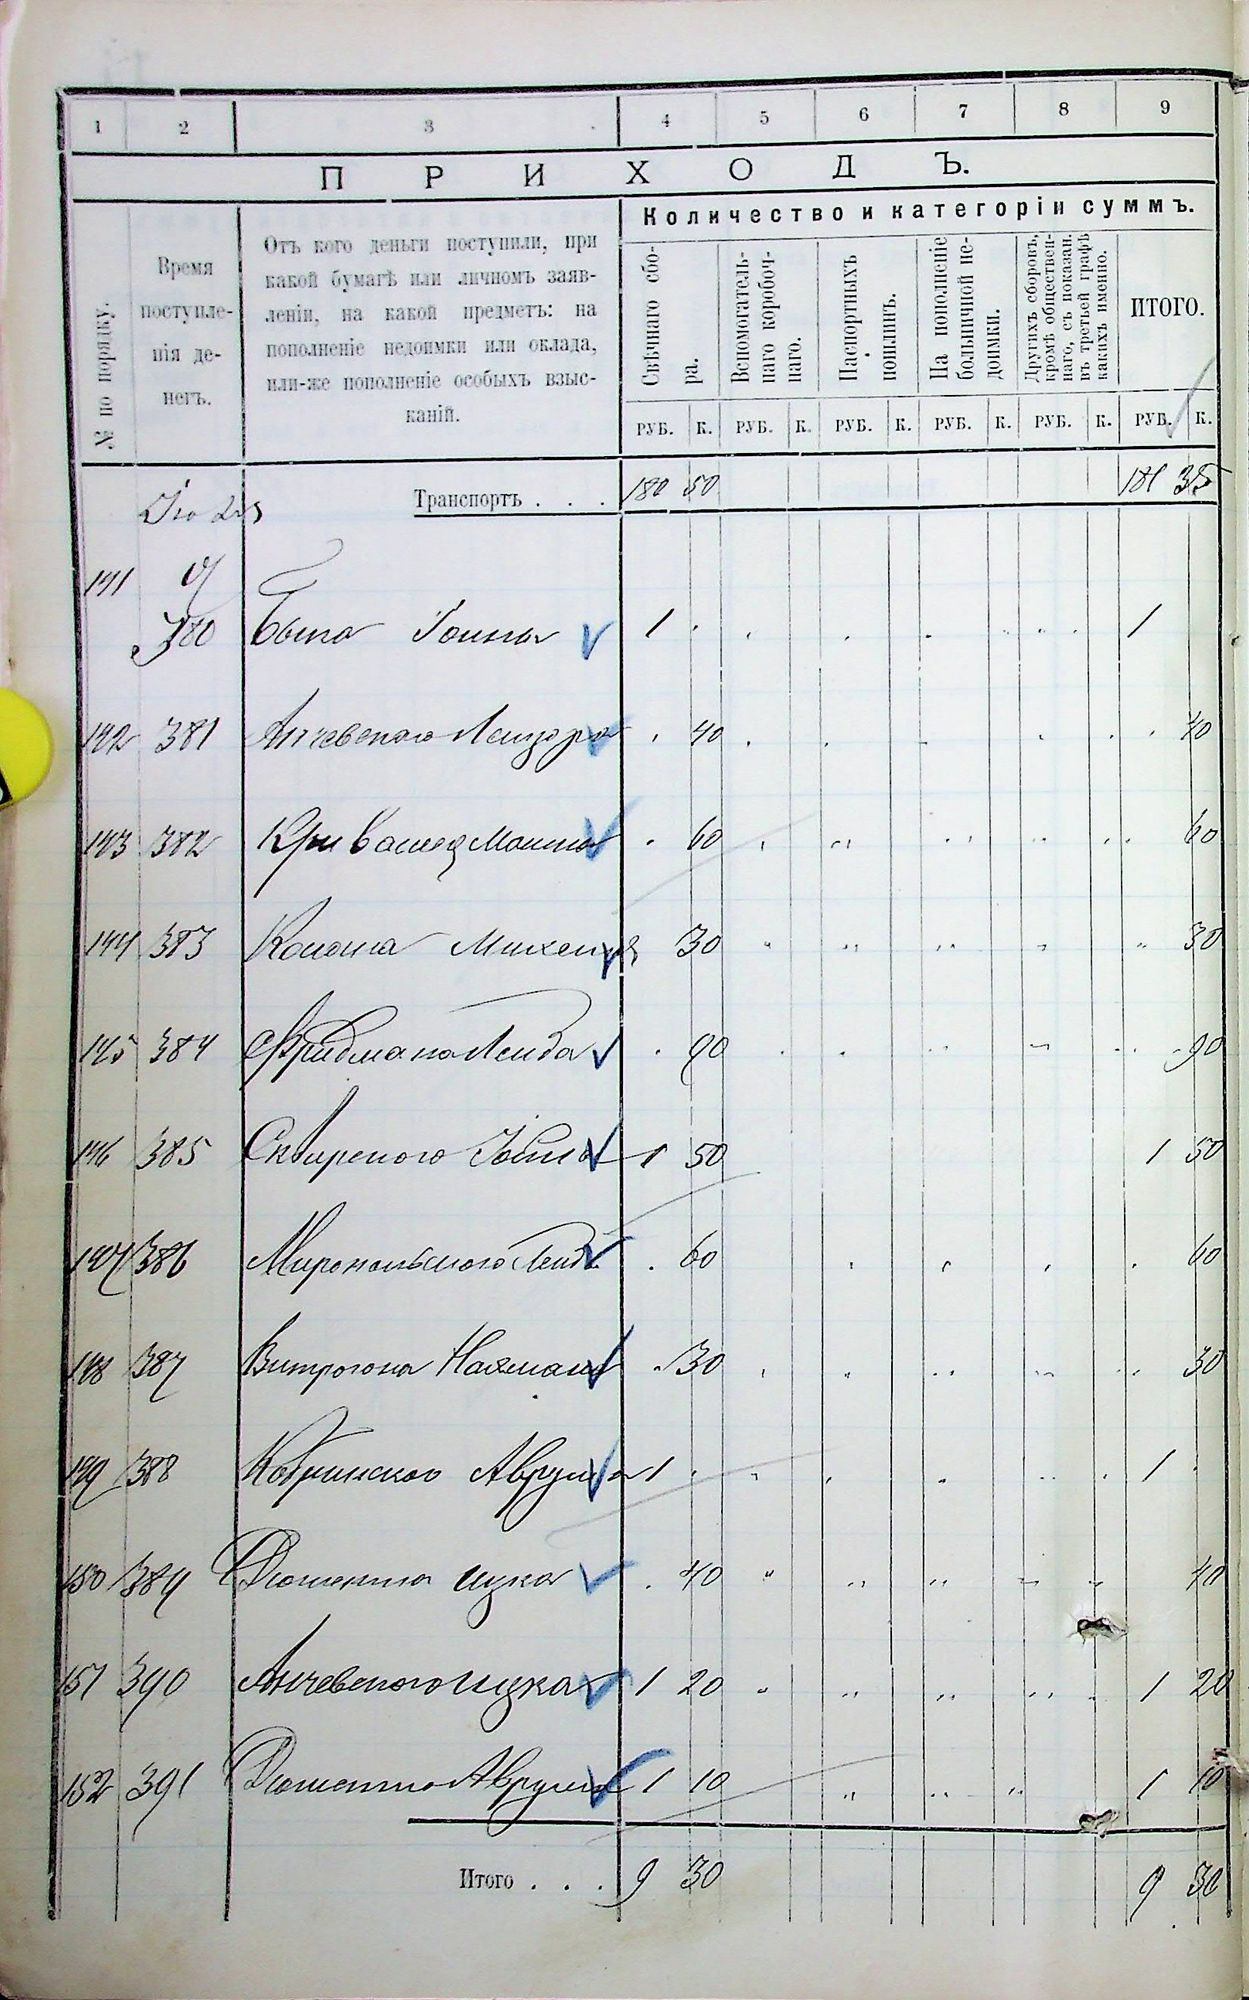 1 2 3 4 5 6 7 8 9
ПРИХОДЪ.
Количество и категоріи суммъ.
№ по порядку.
Время
поступле-
нія де-
негъ.
Отъ кого деньги поступили, при
какой бумагѣ или личномъ заяв-
леніи, на какой предметъ: на
пополненіе недоимки или оклада,
или-же пополненіе особыхъ взыс-
каній.
Свѣчнаго сбо-
ра.
Вспомогатель-
наго коробоч-
наго.
Паспортныхъ
пошлинъ.
На пополненіе
больничной не-
доимки.
Другихъ сборовъ,
кромѣ обществен-
наго, съ показан.
въ третьей графѣ
какихъ именно.
ИТОГО.
РУБ. К. РУБ. К. РУБ. К. РУБ. К. РУБ. К. РУБ. К.
Транспортъ . . . 180 50 181 35
141
380 1 1
142 381 Анчевского Лейзора 40 40
143 382 60 60
144 383 30 30
145 384 Фридмана Лейба 90 90
146 385 Сквирского 1 50 1 50
147 386 Миропольского Лейб 60 60
148 387 Витрогона Нахмана 30 30
149 388 Кобринского Аврума 1 1
150 389 Ицка 40 40
151 390 Анчевского Ицка 1 20 1 20
152 391 Аврума 1 10 1 10
Итого . . . 9 30 9 30